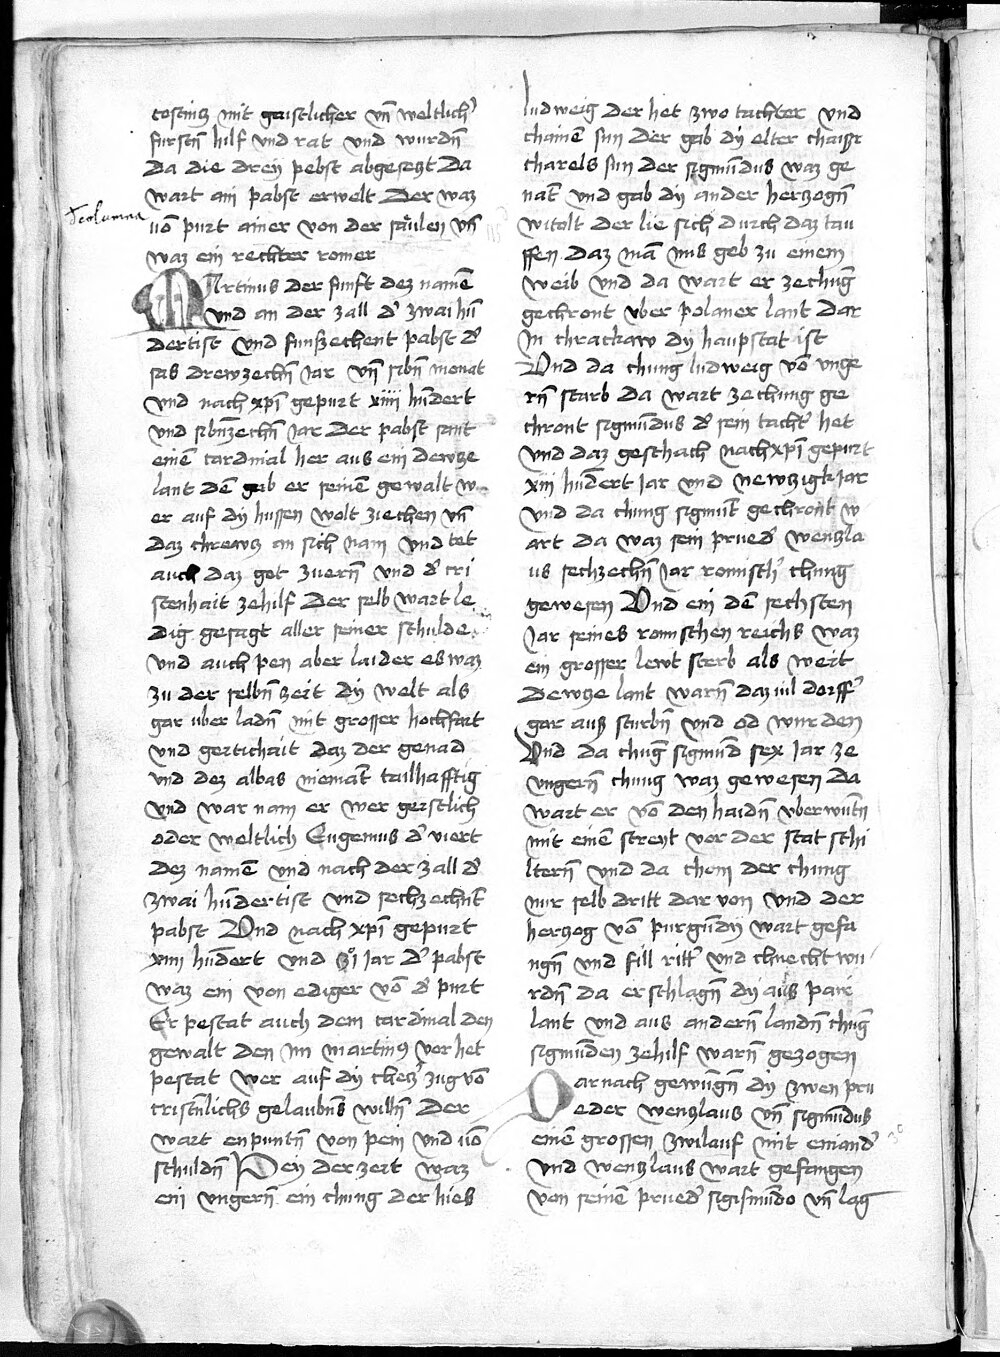 costnitz mit gaistlicher vn̄ weltlich̾
fursten̄ hilf vnd rat vnd wurdn̄
Da die dreȷ pebst abgesetzt Da
wart ain pabst erwelt Der waz
uō purt ainer von der säulen vn̄
waz ein rechter romer
de columna
MArtinus der funft dez namē
vnd an der zall d̾ zwai hū
dertist vnd funfzechent pabst d̾
sas drewzechn̄ Jar vn̄ sibn̄ monat
vnd nach xp̄i gepurt xiiii hūdert
vnd sibn̄zechn̄ Jar Der pabst sant
einē cardinal her aus ein dewtze
lant dē gab er seinē gewalt w
er auf dy hussen wolt ziechen vn̄
daz chrewtz an sich nam vnd tet
auch daz got zuern̄ vnd d̾ cri
stenhait zehilf Der selb wart le
dig gesagt aller seiner schulde
vnd auch pen aber laider es waz
zu der selbn̄ zeit dy welt als
gar uber ladn̄ mit grosser hochfart
vnd geitichait daz der genad
vnd dez albas niemāt tailhafftig
vnd war nam er wer geistlich
oder weltlich Eugenius d̾ viert
dez namē vnd nach der zall d̾
zwai hūdertist vnd sechzechn̄t
pabst Vnd nach xp̄i gepurt
xiiii hūdert vnd Jar d̾ pabst
waz ein venediger vō d̾ purt
Er pestat auch dem cardinal den
gewalt den im martinus vor het
pestat wer auf dy chetz̾ zug vō
cristēlichs gelaubn̄s willn̄ Der
wart enpuntn̄ von pein vnd uō
schuldn̄ Pey der zeit waz
ein vngern̄ ein chung der hies
ludweig der het zwo tachter vnd
chainē sun Der gab dy elter chaiser
charels sun der sigmūdus waz ge
nāt vnd gab dy ander herzogn̄
witolt der lie sich durch daz tau
ffen daz mā ims geb zu einem
weib vnd da wart er ze chung
gechront vber polaner lant dar
In chrackaw dy haupstat ist
Vnd da chung ludweig vō vnge
rn̄ starb da wart ze chung ge
chront sigmūdus d̾ sein tacht̾ het
vnd daz geschach nach xp̄i gepurt
xiii hūdert Jar vnd newtzigk Jar
vnd da chung sigmūt gechront w
art da waz sein prued̾ wentzla
us sechzechn̄ Jar romisch̾ chung
gewesen Vnd ein dē sechsten
Jar seines romischen reichs waz
ein grosser lewt sterb als weit
dewtze lant warn̄ daz uil dorff̾
gar aus sturbn̄ vnd od wurden
Vnd da chūg sigmūd sex Jar ze
vngern̄ chung waz gewesen Da
wart er vō den haidn̄ vberwūtn̄
mit einē streyt vor der stat schi
ltern̄ vnd da chom der chung
nur selb dritt dar von vnd der
hertzog vō purgūdy wart gefa
ngn̄ vnd fill ritt̾ vnd chnecht wu
rdn̄ da erschlagn̄ dy aus pair
lant vnd aus andern̄ landn̄ chūg
sigmūden zehilf warn̄ gezogen
Darnach gewūgn̄ dy zwen pru
eder wentzlaus vn̄ sigmūdus
einē grossen zwilauf mit einand̾
vnd wentzlaus wart gefangen
von seinē prued̾ sigismūdo vn̄ lag